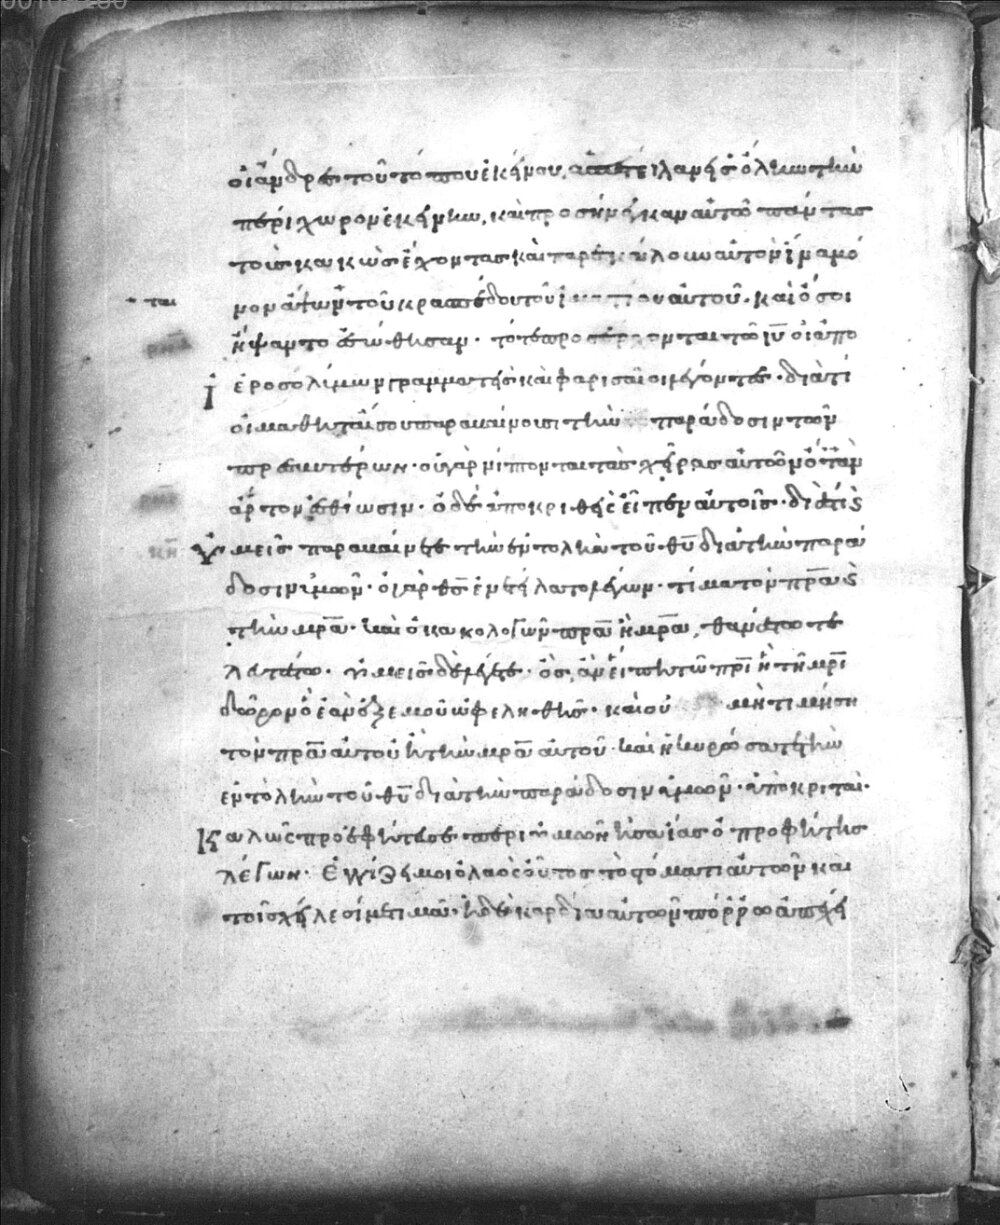 οἱ ἄνδρες τοῦ τόπου ἐκείνου, ἀπέστειλαν εἰς ὅλην τὴν
περίχωρον ἐκείνην, καὶ προσήνεγκαν αὐτῶ πάντας
τοὺς κακῶς ἔχοντας καὶ παρεκάλουν αὐτὸν ἵνα μό
νον ἅψωνται τοῦ κρασπέδου τοῦ ἱματίου αὐτοῦ. καὶ ὅσοι
ἥψαντο ἐσώθησαν. τότε προσέρχονται τῶ ἰυ οἱ ἀπο
ἱεροσολύμων γραμματεῖς καὶ φαρισαῖοι λέγοντες. διὰ τί
οἱ μαθηταί σου παραβαίνουσι τὴν παράδοσιν τῶν
πρεσβυτέρων. οὐ γὰρ νίπτονται τὰς χεῖρας αὐτῶν ὅταν
ἄρτον ἐσθίωσιν. ὁ δὲ ἀποκριθεὶς εἶπεν αὐτοῖς. διὰ τί καὶ
ὑμεῖς παραβαίνετε τὴν ἐντολὴν τοῦ θυ διὰ τὴν παρά
δοσιν ὑμῶν. ὁ γὰρ θς ἐνετείλατο λέγων. τίμα τὸν πρα καὶ
τὴν μρα. καὶ ὁ κακολογῶν πρα ἢ μρα, θανάτω τε
λευτάτω. ὑμεῖς δὲ λέγετε. ὃς ἂν εἴπη τῶ πρι ἢ τῆ μρι
δῶρον ὃ ἐὰν ἐξ ἐμοῦ ὠφεληθῆς. καὶ οὐ μὴ τιμήση
τὸν πρα αὐτοῦ ἢ τὴν μρα αὐτοῦ. καὶ ἠκυρώσατε τὴν
ἐντολὴν τοῦ θυ διὰ τὴν παράδοσιν ὑμῶν. ὑποκριταὶ.
Καλῶς προεφήτευσε περὶ ὑμῶν ἡσαΐας ὁ προφήτης
λέγων. ἐγγίζει μοι ὁ λαὸς οὗτος τῶ στόματι αὐτῶν και
τοῖς χείλεσί με τιμᾶ. ἡ δὲ καρδία αὐτῶν πόρρω ἀπέχει